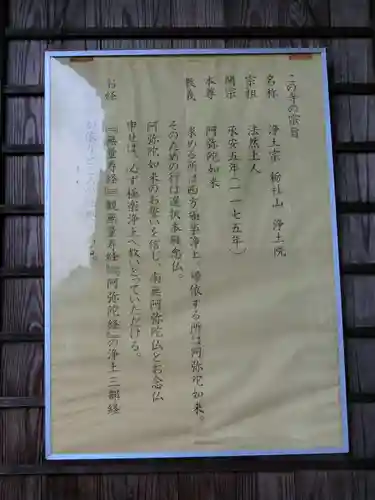 この寺の宗旨
名称 浄土宗 栃社山 浄土院
宗祖 法然上人
開宗 承安五年(一一七五年)
本尊 阿弥陀如来
教義 求める所は西方極楽浄土、帰依する所は阿弥陀如来。
そのための行は選択本願念仏。
阿弥陀如来のお誓いを信じ、南無阿弥陀仏とお念仏
申せば、必ず極楽浄土へ救いとっていただける。
お経 『無量寿経』『観無量寿経』『阿弥陀経』の浄土三部経